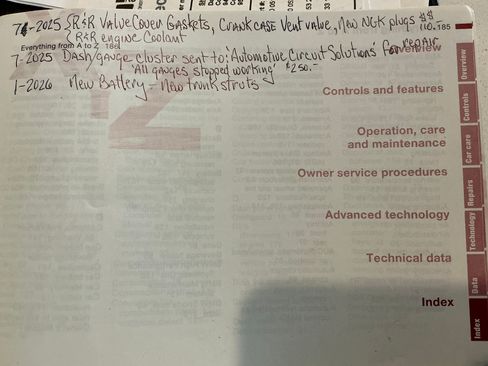 7-2025 R&R Valve Cover Gaskets, Crankcase Vent valve, New NGK plugs $$
R&R engine Coolant 110.-
185
Everything from A to Z 186
7-2025 Dash/gauge cluster sent to: "Automotive Circuit Solutions" for repair
Overview
"All gauges stopped working" $250.-
1-2026 New Battery - New trunk struts
Controls and features
Operation, care
and maintenance
Owner service procedures
Advanced technology
Technical data
Index
Overview
Controls
Car care
Repairs
Technology
Data
Index